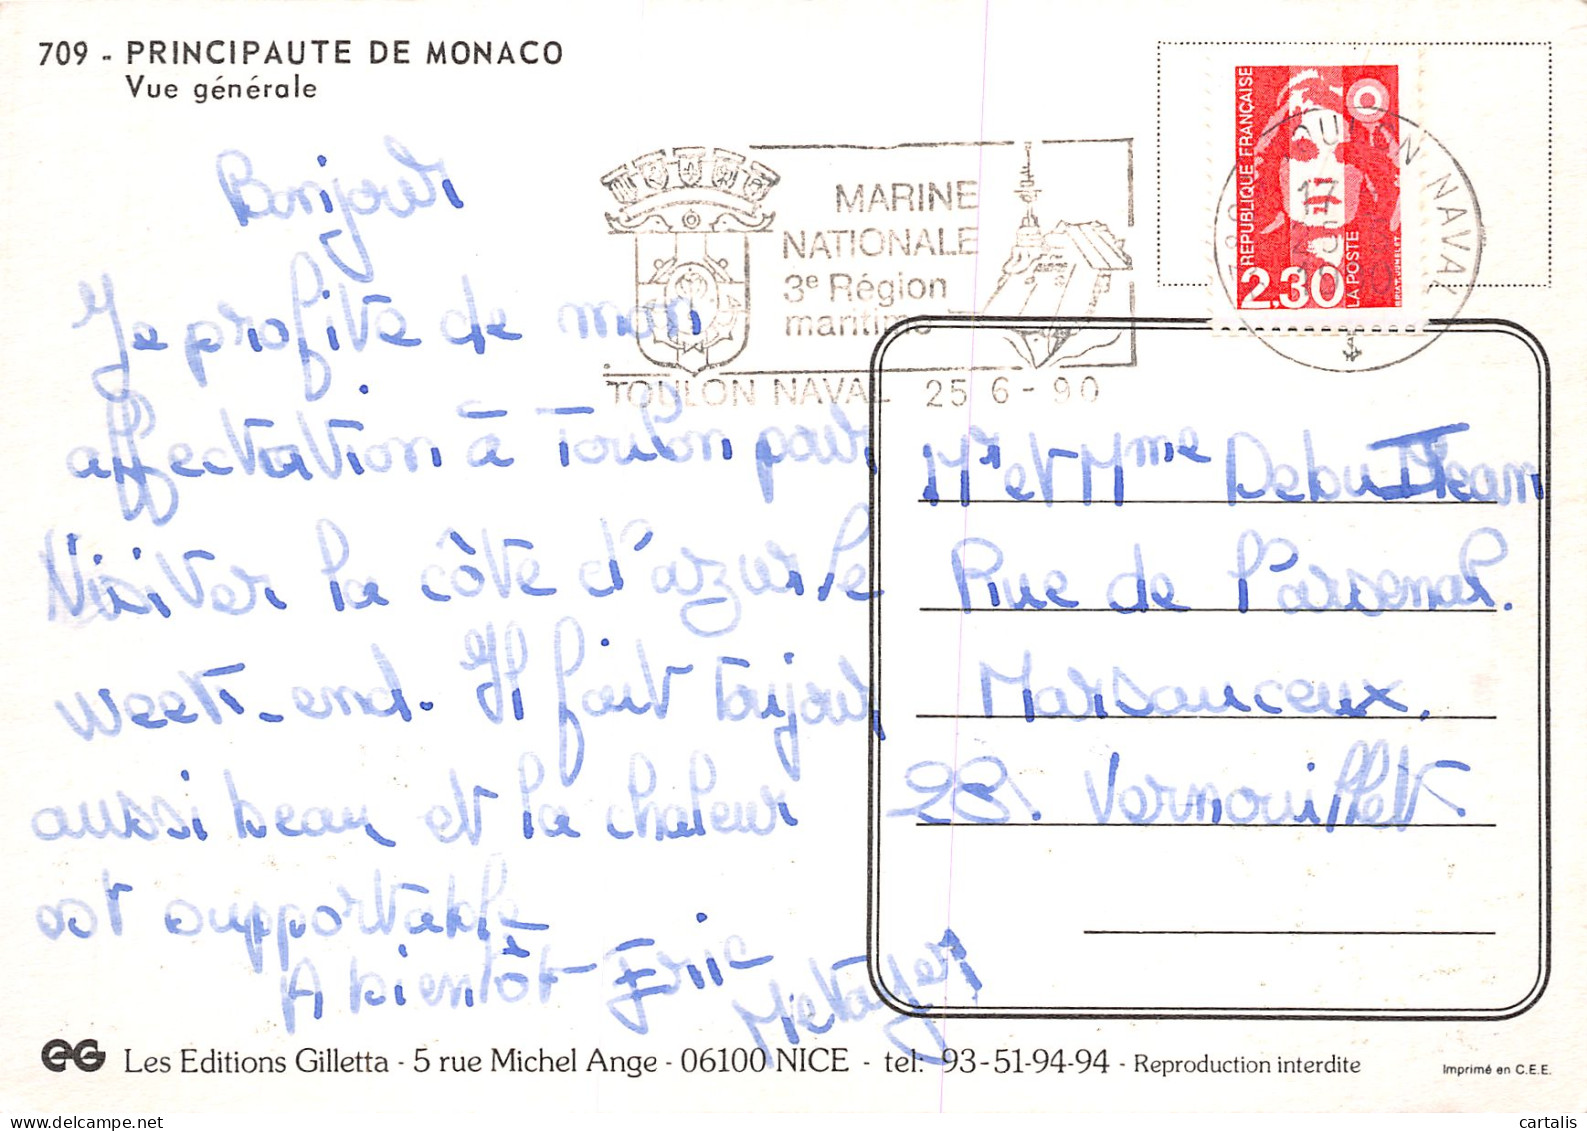 709 - PRINCIPAUTE DE MONACO
Vue générale
MARINE
NATIONALE
3e Région
maritime
TOULON NAVAL 25 6 - 90
TOULON NAVAL
17 H
REPUBLIQUE FRANÇAISE
2.30
LA POSTE
BRIAT.JUMELET
Bonjour
Je profite de mon
affectation à Toulon pour
Visiter la côte d'azur le
week-end. Il fait toujours
aussi beau et la chaleur
est supportable
A bientôt Eric
Metayer
Mr et Mme Debu Jean
Rue de l'arsenal.
Marsauceux.
28. Vernouillet.
Les Editions Gilletta - 5 rue Michel Ange - 06100 NICE - tel: 93-51-94-94 - Reproduction interdite
Imprimé en C.E.E.
cartalis